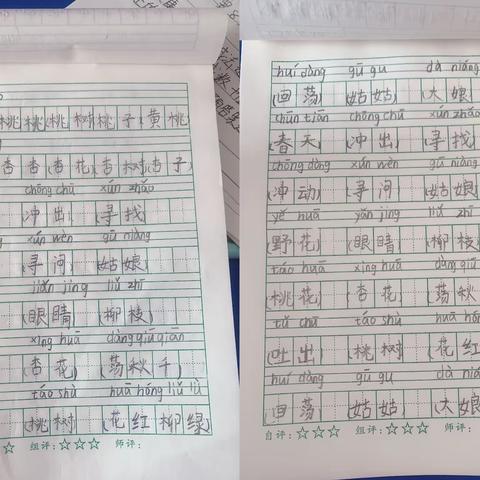 桃 桃 桃 树 桃 子 黄 桃
杏 杏 (杏 花) 杏 树 (杏 子)
chōng chū xún zhǎo
冲 出 (寻 找)
xún wèn gū niáng
(寻 问) (姑 娘)
yǎn jīng liǔ zhī
(眼 睛) (柳 枝)
xìng huā dàng qiū qiān
杏 花) (荡 秋 千)
táo shù huā hóng liǔ lǜ
(桃 树) (花 红 柳 绿)
☆ 组评：☆☆☆ 师评：
huí dàng gū gu dà niáng
(回 荡) (姑 姑) (大 娘
chūn tiān chōng chū xún zhǎo
(春 天) (冲 出) (寻 找)
chōng dòng xún wèn gū niáng
(冲 动) (寻 问) (姑 娘)
yě huā yǎn jīng liǔ zhī
(野 花) (眼 睛) (柳 枝)
táo huā xìng huā dàng qiū
(桃 花) (杏 花) (荡 秋
tǔ chū táo shù huā hó
(吐 出) (桃 树) (花 红
huí dàng gū gu dà niá
(回 荡) (姑 姑) (大 娘
自评：☆☆☆ 组评：☆☆☆ 师评：